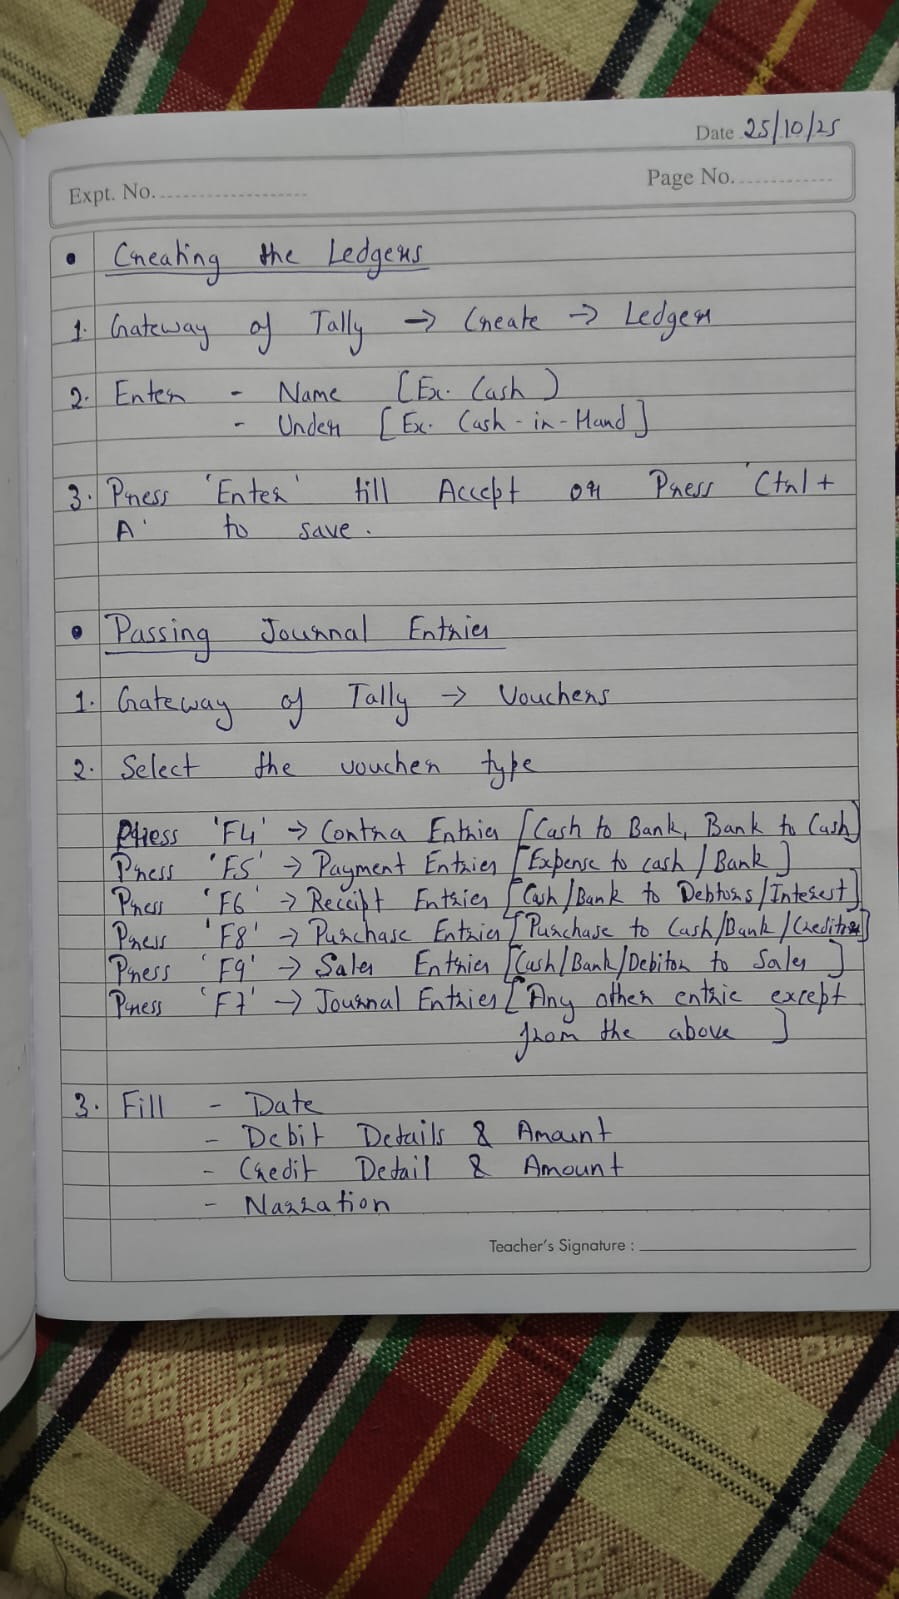 Date 25/10/25
Expt. No.
Page No.
• Creating the Ledgers
1. Gateway of Tally → Create → Ledger
2. Enter - Name [Ex. Cash)
- Under [Ex. Cash-in-Hand]
3. Press 'Enter' till Accept or Press 'Ctrl +
A' to save.
• Passing Journal Entries
1. Gateway of Tally → Vouchers
2. Select the voucher type
Press 'F4' → Contra Entries [Cash to Bank, Bank to Cash]
Press 'F5' → Payment Entries [Expense to cash/Bank]
Press 'F6' → Receipt Entries [Cash/Bank to Debtors/Interest]
Press 'F8' → Purchase Entries [Purchase to Cash/Bank/Creditors]
Press 'F9' → Sales Entries [Cash/Bank/Debitor to Sales]
Press 'F7' → Journal Entries [Any other entrie except
from the above]
3. Fill - Date
- Debit Details & Amount
- Credit Detail & Amount
- Narration
Teacher's Signature :